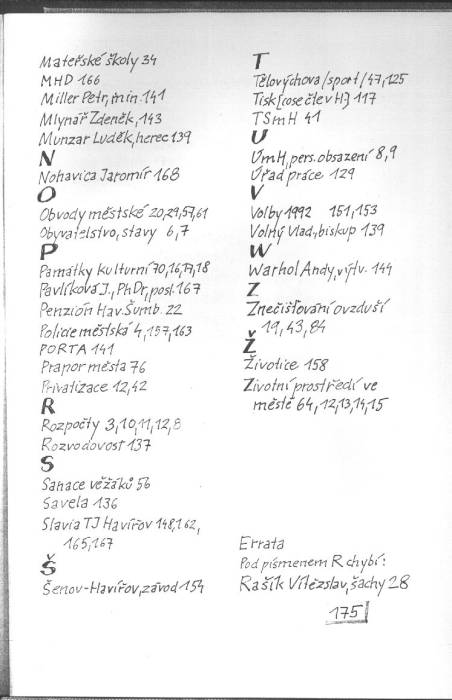 Mateřské školy 34
MHD 166
Miller Petr, min. 141
Mlynář Zdeněk, 143
Munzar Luděk, herec 139
N
Nohavica Jaromír 168
O
Obvody městské 20,29,57,61
Obyvatelstvo, stavy 6,7
P
Památky kulturní 70,16,17,18
Pavlíková J., PhDr, posl. 167
Penzión Hav. Šumb. 22
Policie městská 4,157,163
PORTA 141
Prapor města 76
Privatizace 12,42
R
Rozpočty 3,10,11,12,8
Rozvodovost 137
S
Sanace věžáků 56
Savela 136
Slavia TJ Havířov 148,162,
165,167
Š
Šenov-Havířov, závod 154
T
Tělovýchova/sport/47,125
Tisk (ose čte v H) 117
TSmH 41
U
ÚmH, pers. obsazení 8,9
Úřad práce 129
V
Volby 1992 151,153
Volný Vlad., biskup 139
W
Warhol Andy, výtv. 144
Z
Znečišťování ovzduší
19,43,84
Ž
Životice 158
Životní prostředí ve
městě 64,12,13,14,15
Errata
Pod písmenem R chybí:
Rašík Vítězslav, šachy 28
175